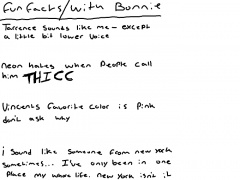 fun facts/with Bonnie
Tarrence sounds like me- except
a little bit lower voice
neon hates when People call
him THICC
Vincents favorite color is Pink
don't ask why
i sound like someone from new york
sometimes... I've only been in one
Place my whole life. new york isn't it